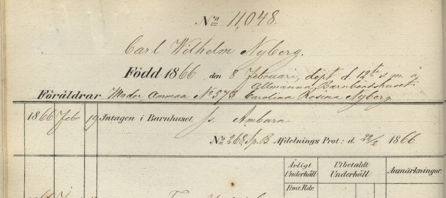 No 11,048.
Carl Wilhelm Nyberg.
Född 1866 den 8 Februari, döpt d 12te s. m. i
Allmänna Barnbördshuset
Föräldrar Moder Amman No 578 Carolina Rosina Nyberg
1866 Feb 19 Intagen i Barnhuset s. Ambarn
No 268 Afdelnings Prot: d. 22/2 1866
Årligt Underhåll Utbetaldt Underhåll Anmärkningar
Rmt. Rdr.